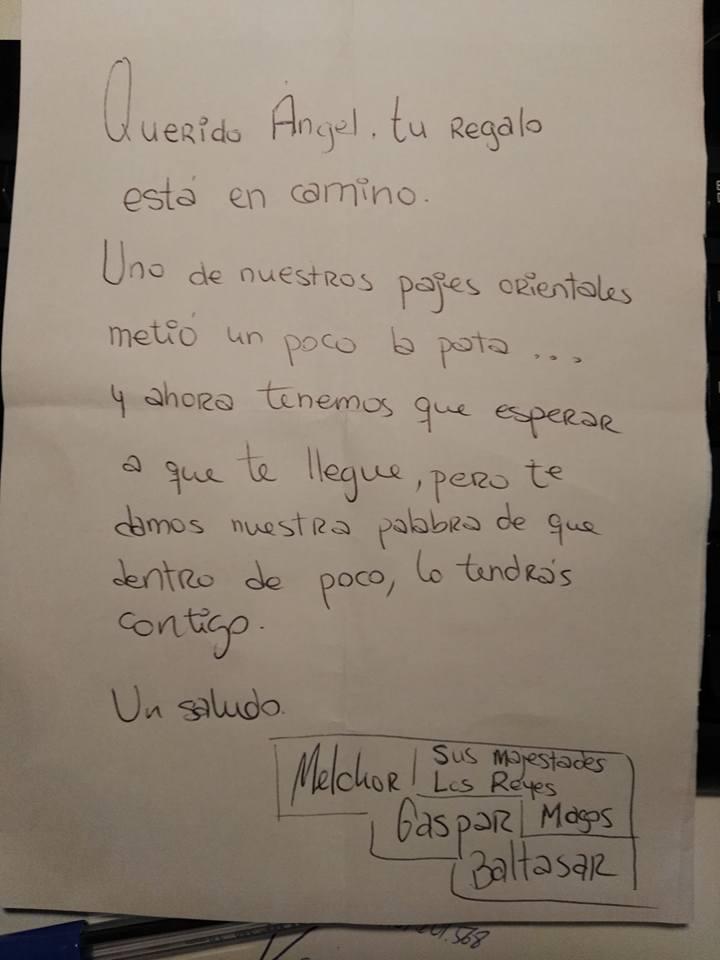 Querido Ángel, tu Regalo
está en camino.
Uno de nuestros pajes orientales
metió un poco la pata ...
y ahora tenemos que esperar
a que te llegue, pero te
damos nuestra palabra de que
dentro de poco, lo tendrás
contigo.
Un saludo.
Melchor Sus Majestades
Los Reyes
Gaspar Magos
Baltasar